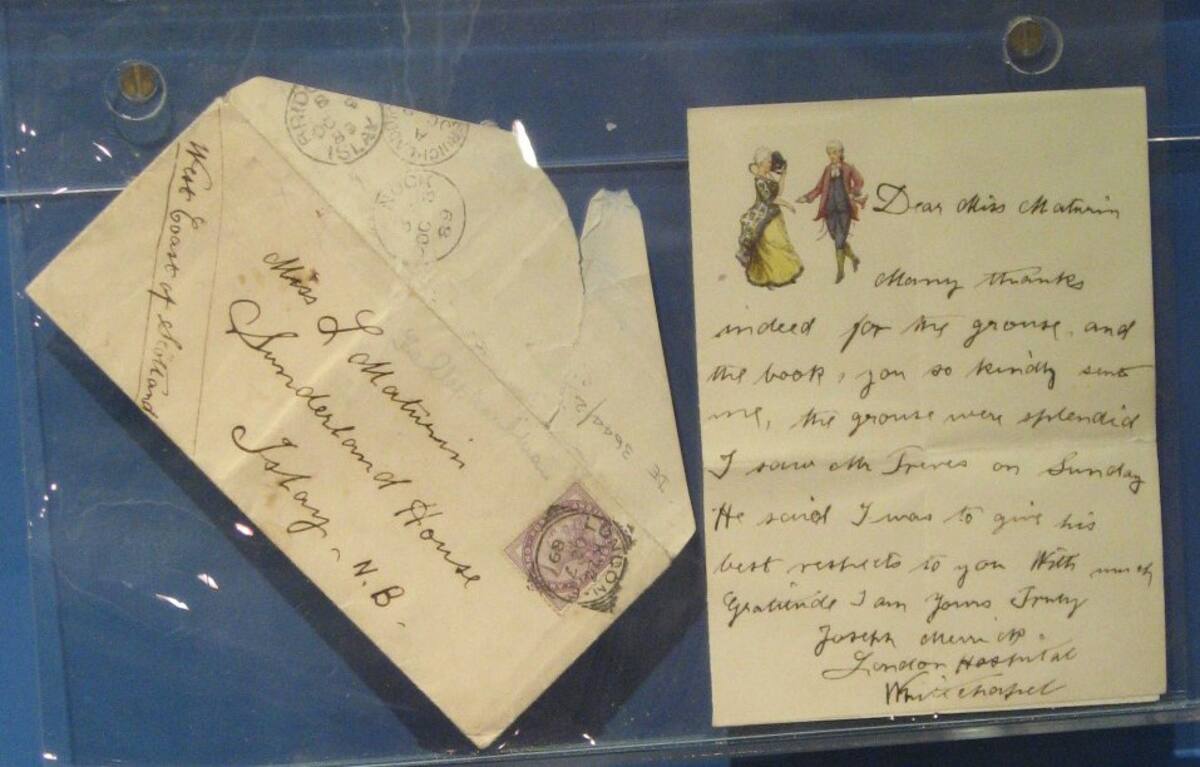 West Coast of Scotland
Miss L Maturin
Sunderland House
Islay - N.B.
ISLAY
LONDON
89
DE 3644/2
Dear Miss Maturin
Many thanks
indeed for the grouse, and
the book, you so kindly sent
me, the grouse were splendid
I saw Mr Treves on Sunday
He said I was to give his
best respects to you With much
Gratitude I am Yours Truly
Joseph Merrick.
London Hospital
Whitechapel